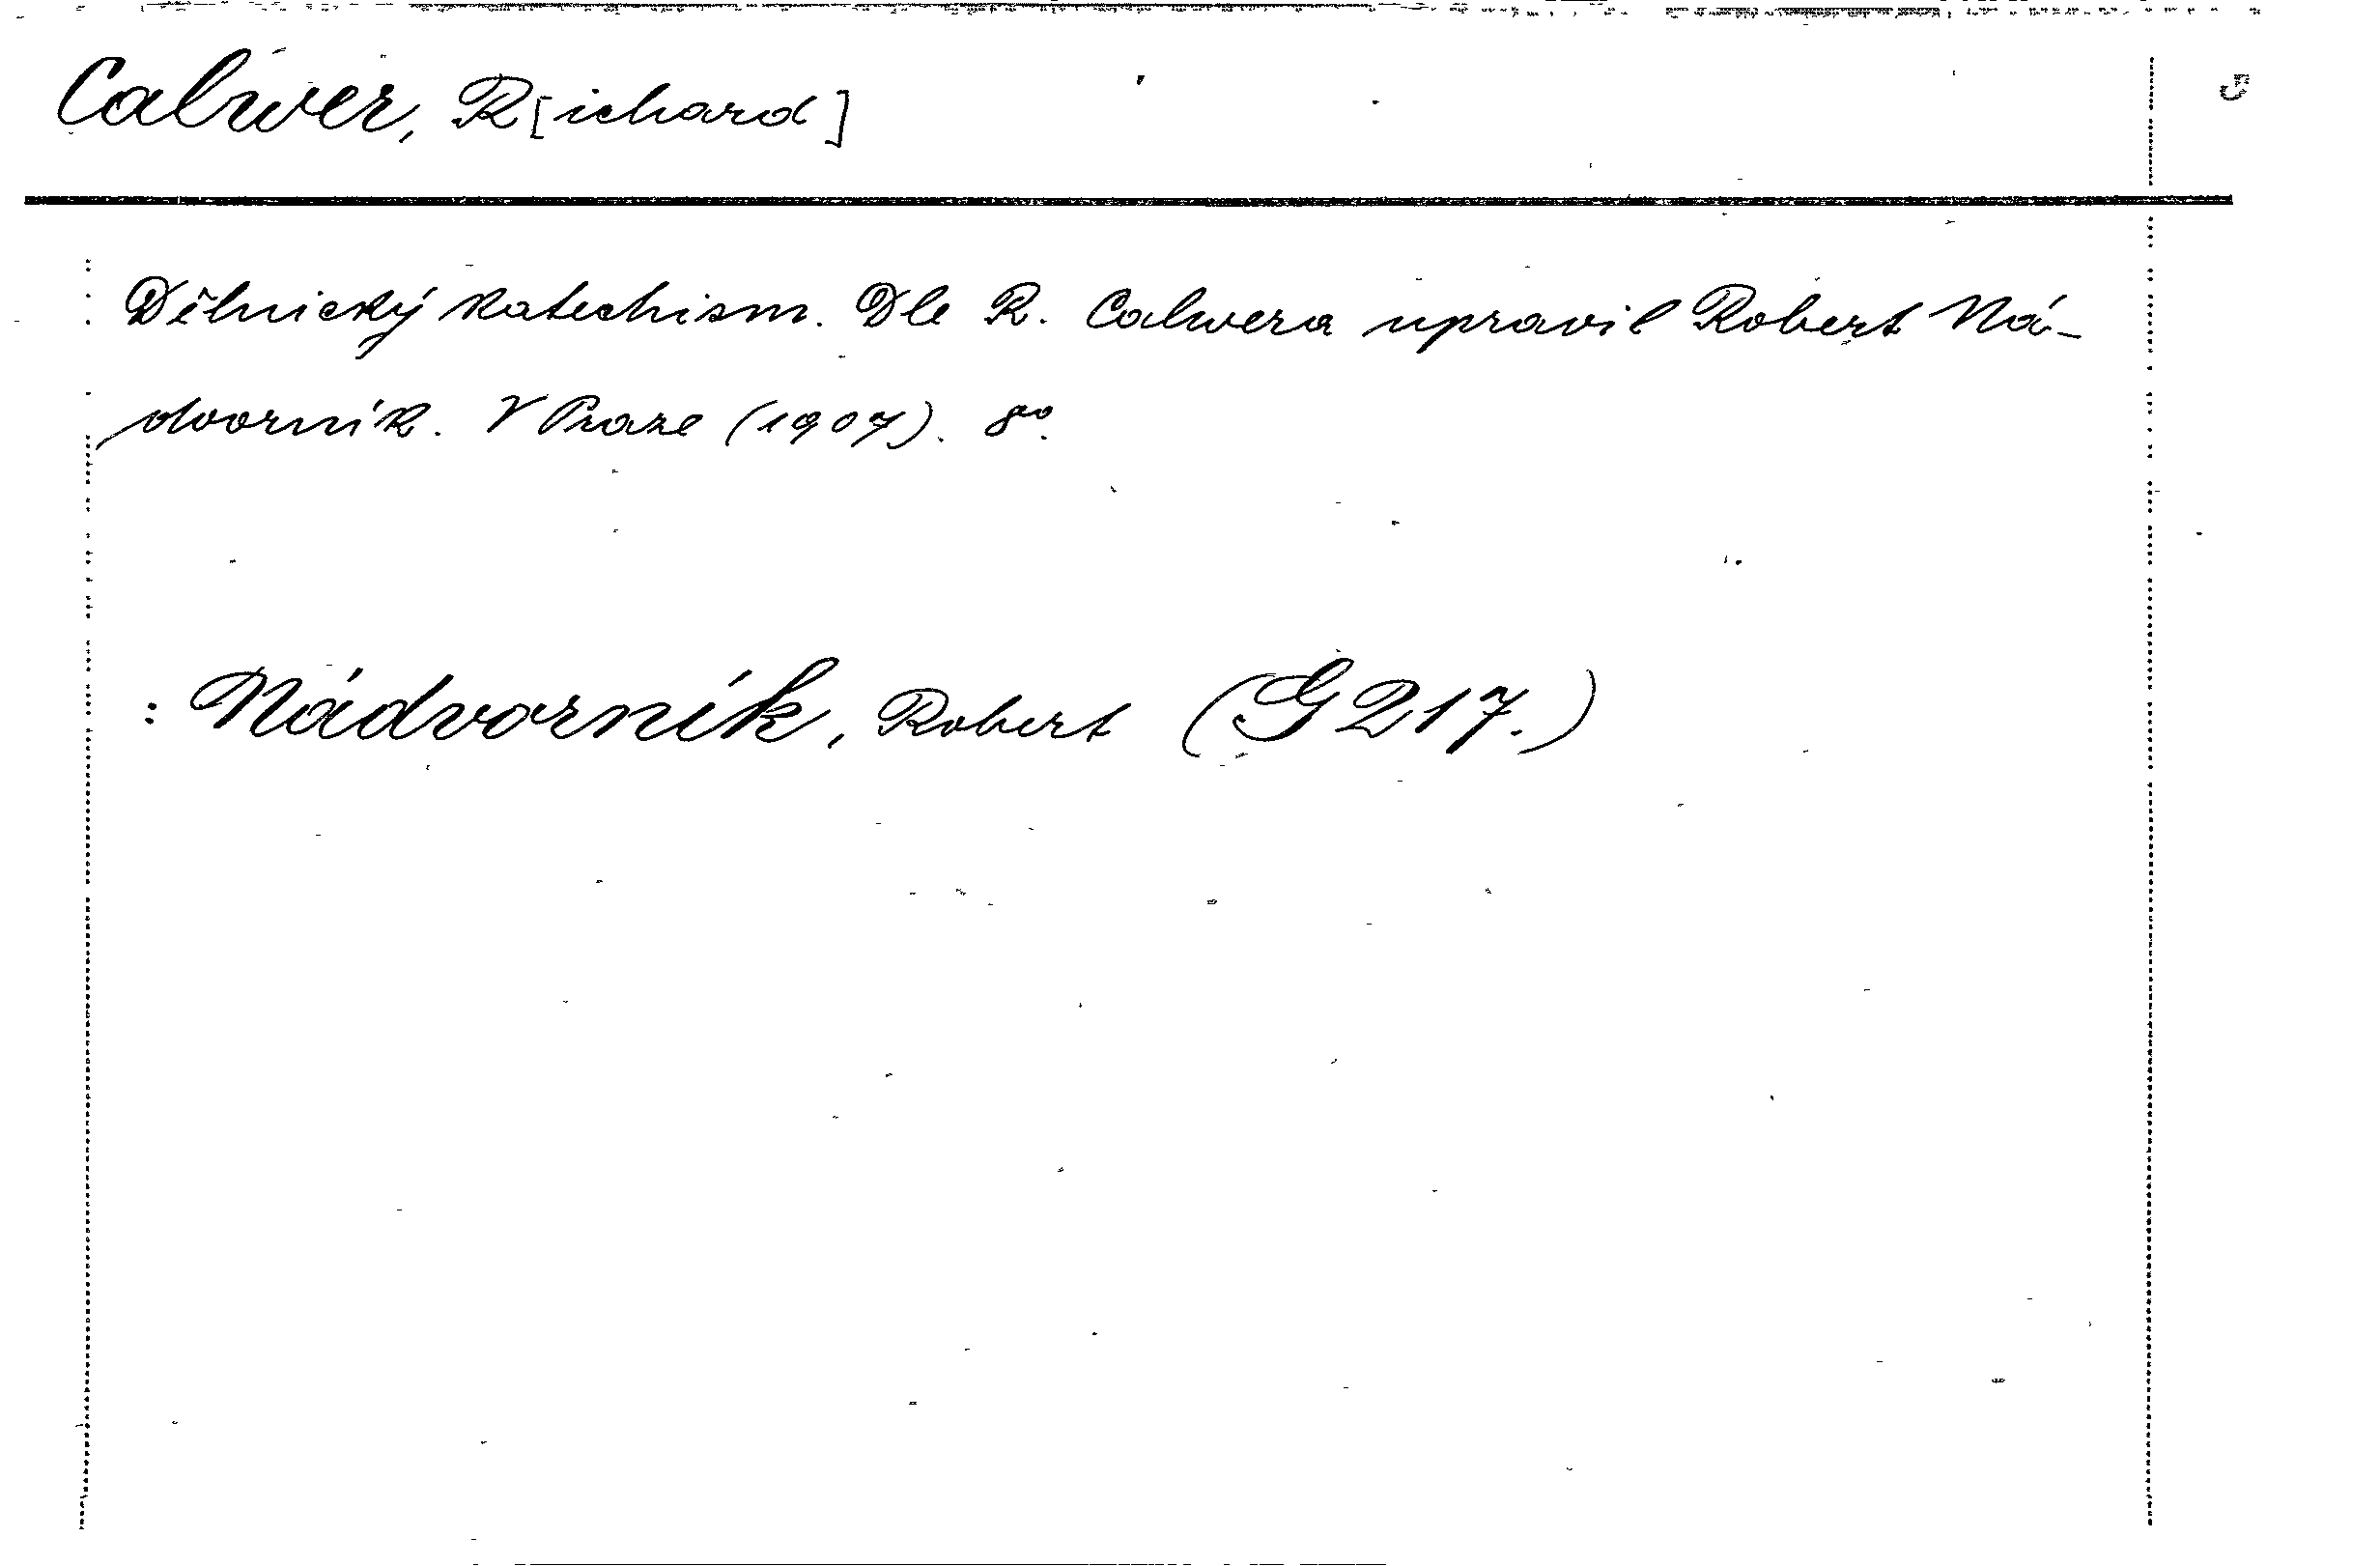 Calwer, R[ichard]
Dělnický katechism. Dle R. Calwera upravil Robert Ná-
dvorník. V Praze (1907). 8º.
: Nádvorník, Robert (G 217.)